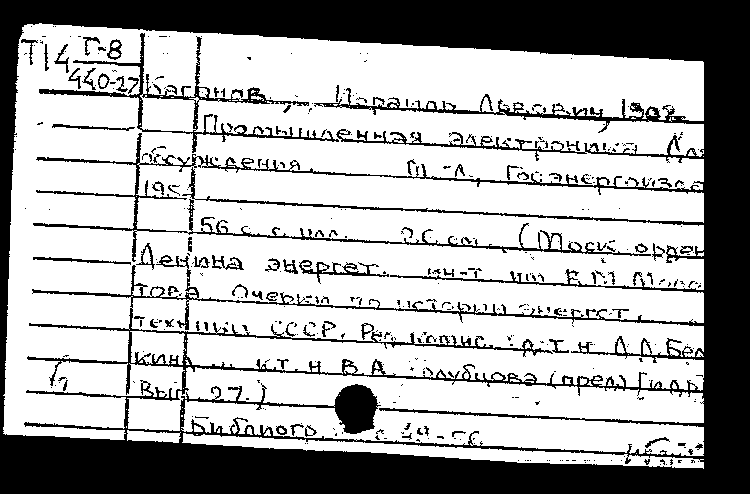 Т14 Г-8
440-27 Каганов, Израиль Львович, 1902
Промышленная электроника Для
обсуждения. М.-Л., Госэнергоиздат
195
56 с. с илл. 26 см. (Моск. орден
Ленина энергет. ин-т им В.М. Моло
това. Очерки по истории энергет.
техники СССР. Ред комис. д.т.н Д.Д. Бел
кинд и к.т.н В.А. Голубцова (пред) [и др]
Вып. 27.)
Библиогр. с 49-56